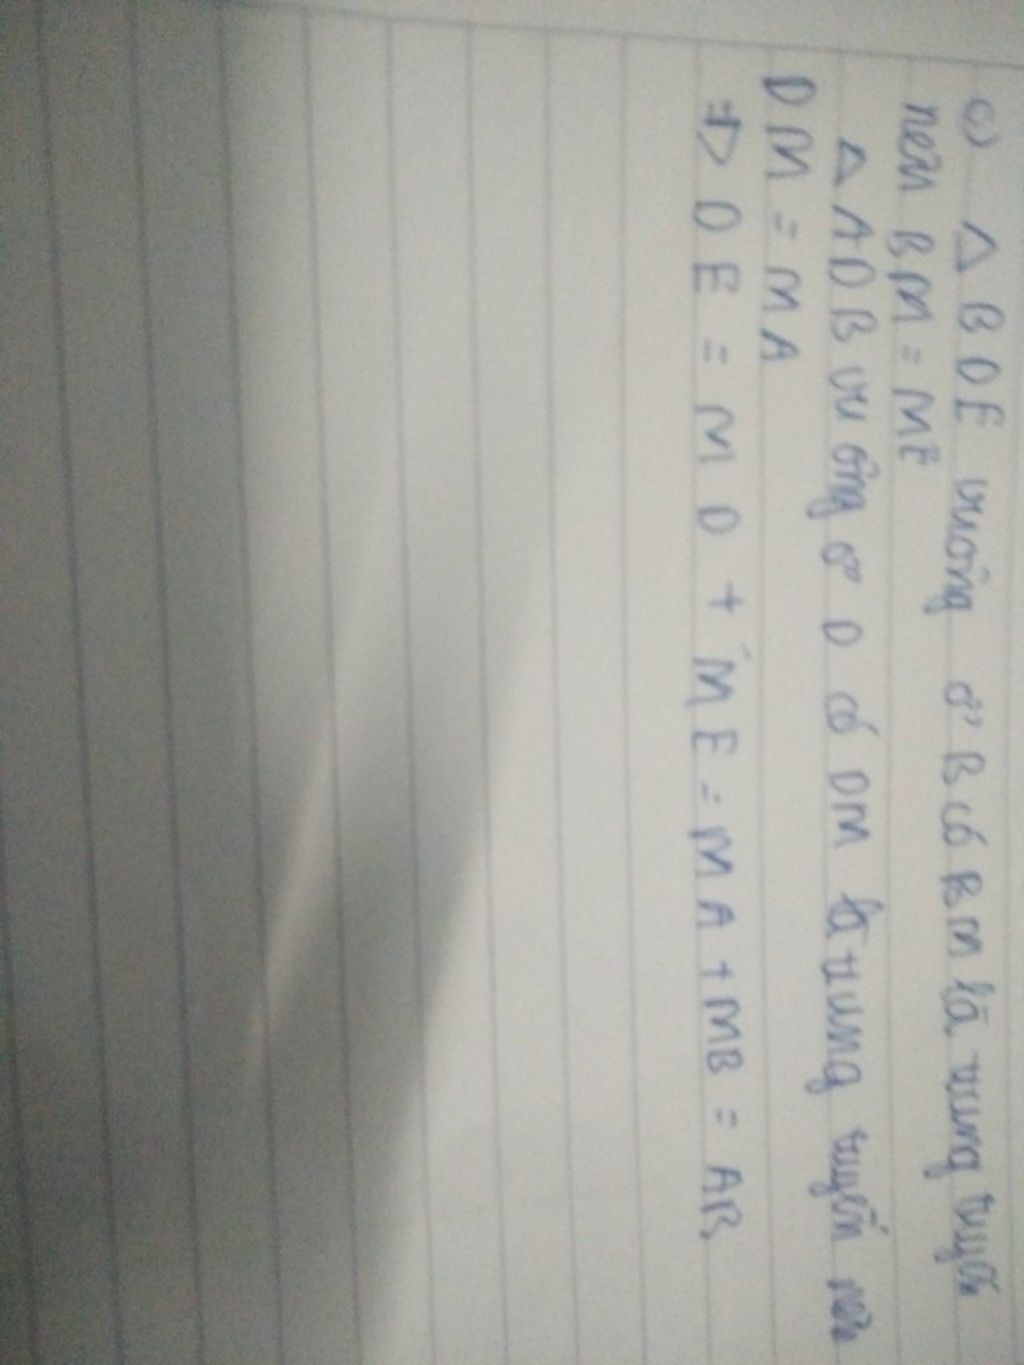 c) Δ BDE vuông ở B có BM là trung tuyến
nên BM = ME
Δ ADB vuông ở D có DM là trung tuyến nên
DM = MA
=> DE = MD + ME = MA + MB = AB